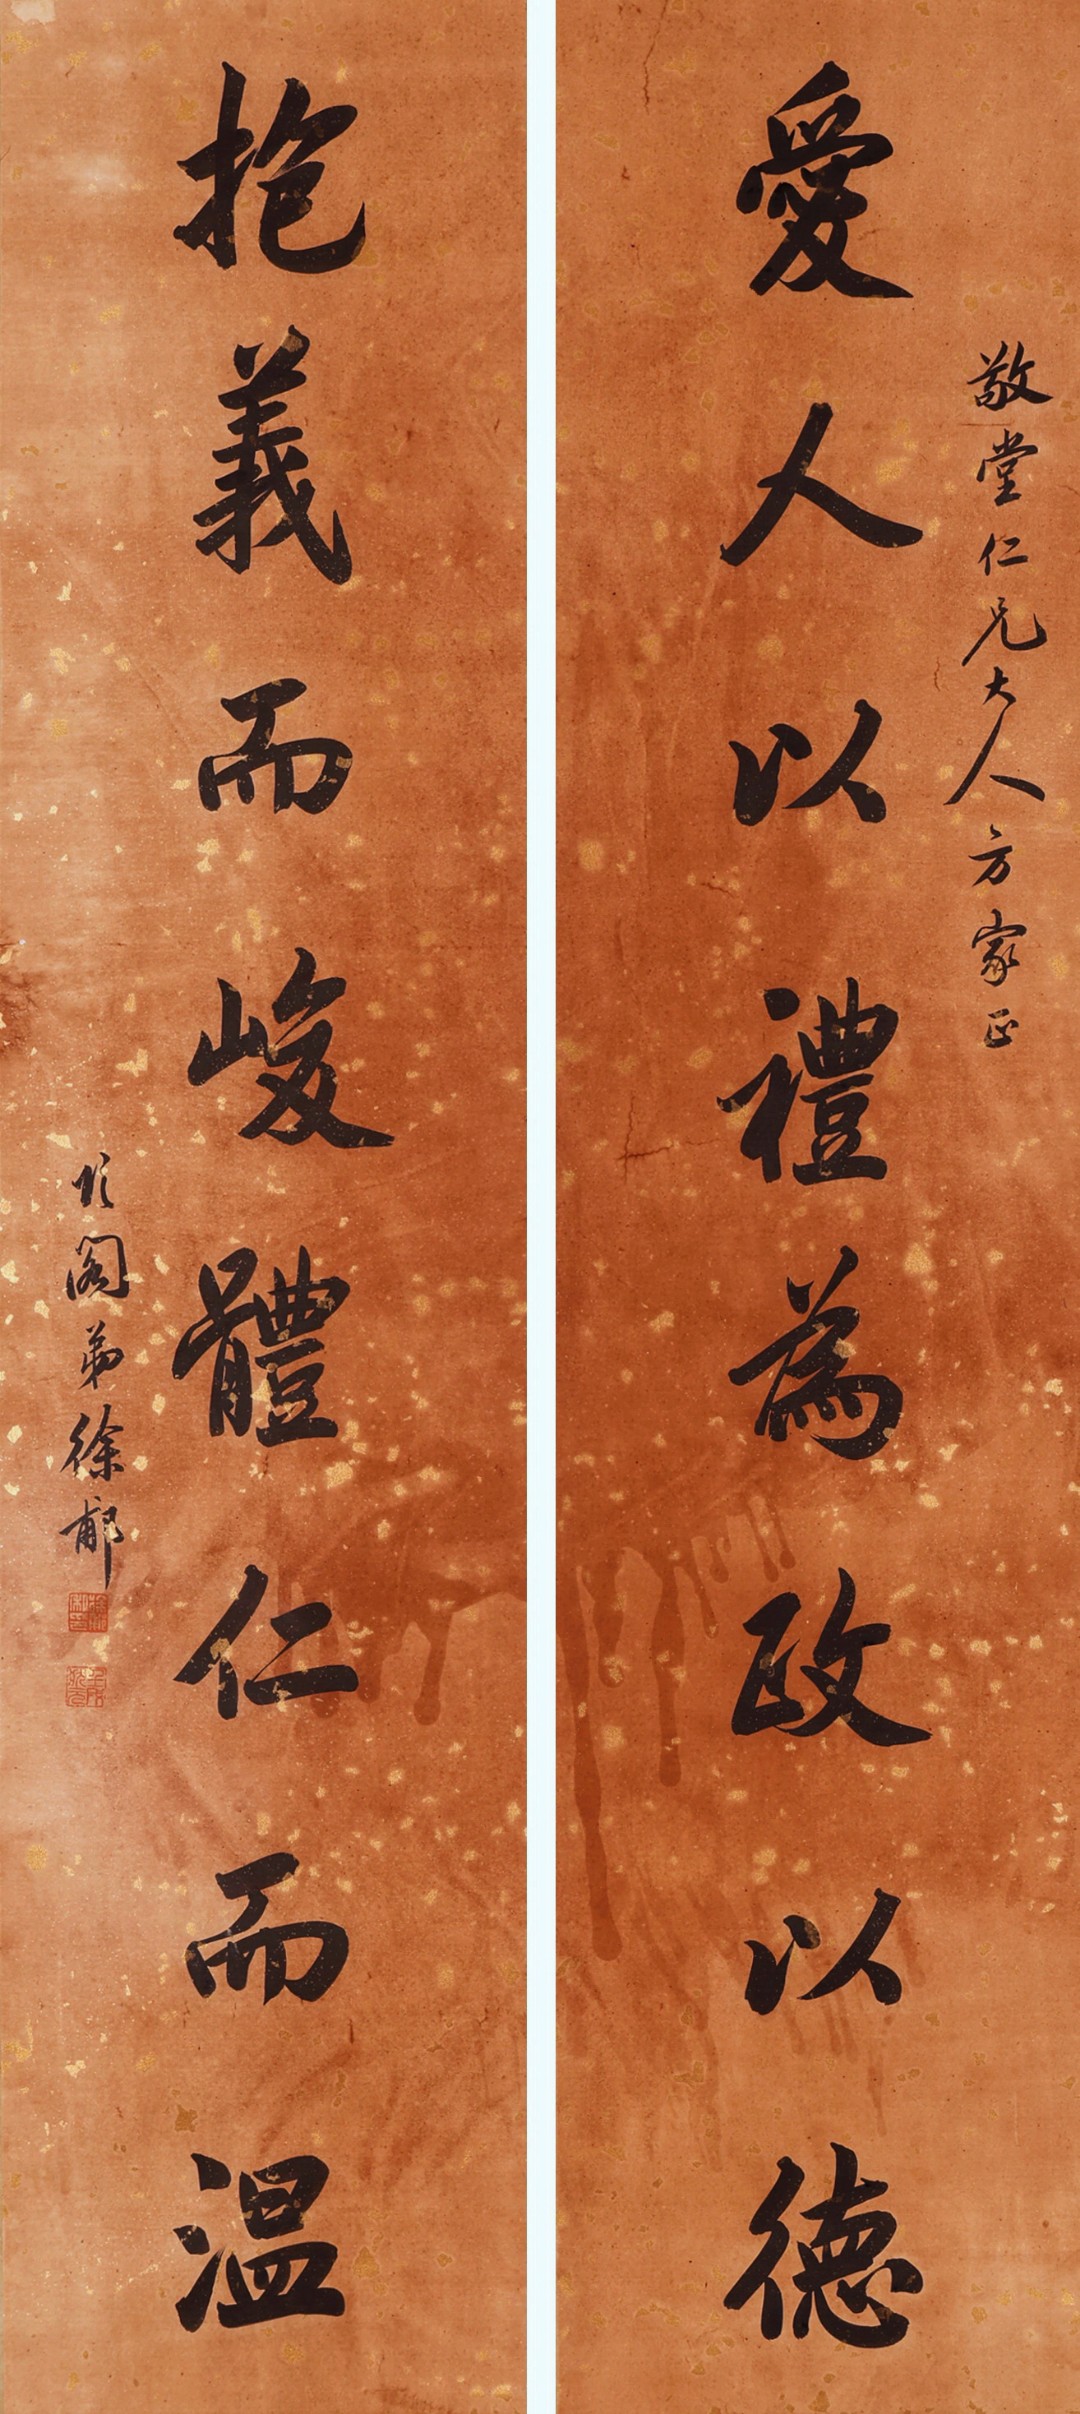 愛人以禮為政以德
敬堂仁兄大人方家正
抱義而峻體仁而溫
頌閣弟徐郙